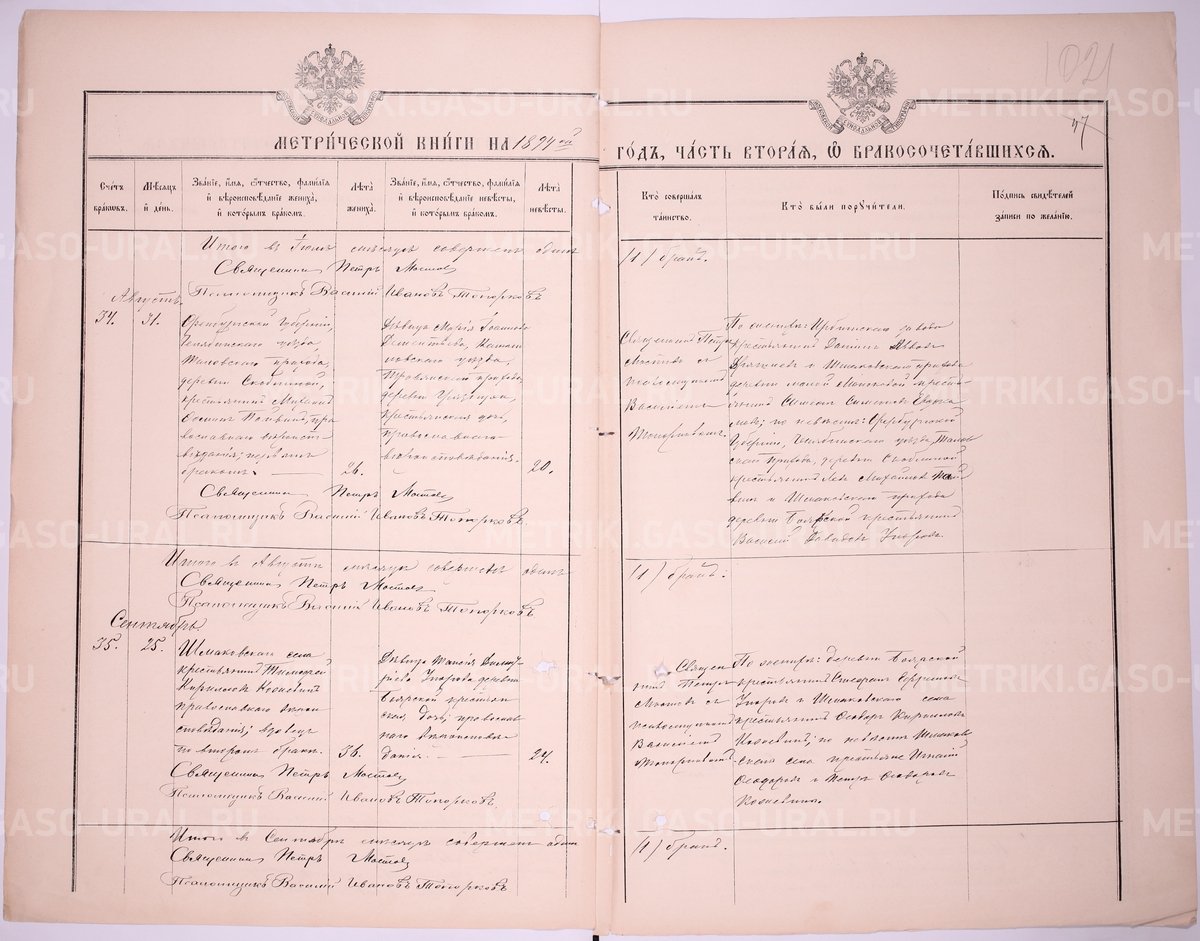 1021
47
МЕТРИ́ЧЕСКОЙ КНИ́ГИ НА 1894 ой
ГО́ДЪ, ЧА́СТЬ ВТОРА́Я, Ѡ БРАКОСОЧЕТА́ВШИХСЯ.
Сче́тъ бра́ковъ.
Мѣ́сяцъ и́ де́нь.
Зва́ніе, и́мя, ѻ́тчество, фами́лія и́ вѣроисповѣ́даніе жениха̀, и́ кото́рымъ бра́комъ.
Лѣ́та жениха̀.
Зва́ніе, и́мя, ѻ́тчество, фами́лія и́ вѣроисповѣ́даніе невѣ́сты, и́ кото́рымъ бра́комъ.
Лѣ́та невѣ́сты.
Кто̀ соверша́лъ та́инство.
Кто̀ бы́ли поручи́тели.
По́дпись свидѣ́телей за́писи по жела́нію.
Итого въ Іюлѣ мѣсяцѣ совершенъ одинъ
(1) бракъ.
Священникъ Петръ Мостовъ
Псаломщикъ Василій Ивановъ Топорковъ
Августъ.
34. 31.
Оренбургской Губерніи,
Челябинскаго уѣзда,
прихода,
деревни
крестьянинъ
православнаго вѣроиспо-
вѣданія; первымъ
бракомъ.
26.
Дѣвица Марія Іоаннова
Дементьева, Камыш-
ловскаго уѣзда,
прихода,
деревни
крестьянская дочь,
православнаго
вѣроисповѣданія.
20.
Священникъ Петръ
Мостовъ съ
псаломщикомъ
Василіемъ
Топорковымъ.
По женихѣ: Ирбитскаго завода
крестьянинъ Даніилъ
и Шмаковскаго прихода
деревни малой
Симеонъ Симеоновъ
по невѣстѣ: Оренбургской
Губерніи, Челябинскаго уѣзда,
прихода, деревни
крестьянинъ Левъ
и Шмаковскаго прихода
деревни Боярской крестьянинъ
Василій Давидовъ Угоровъ.
Священникъ Петръ Мостовъ
Псаломщикъ Василій Ивановъ Топорковъ
Итого въ Августѣ мѣсяцѣ совершенъ одинъ
(1) бракъ.
Священникъ Петръ Мостовъ
Псаломщикъ Василій Ивановъ Топорковъ
Сентябрь.
35. 25.
Шмаковскаго села
крестьянинъ Тимофей
Кирилловъ
православнаго вѣрои-
сповѣданія; вдовецъ
по второмъ бракѣ.
36.
Дѣвица Таисія Дими-
тріева Угорова деревни
Боярской крестьян-
ская дочь; православ-
наго вѣроисповѣ-
данія.
24.
Священ-
никъ Петръ
Мостовъ съ
псаломщикомъ
Василіемъ
Топорковымъ
По женихѣ: деревни Боярской
крестьянинъ
Угоровъ и Шмаковскаго села
крестьянинъ Ѳеодоръ Кирилловъ
по невѣстѣ Шмаков-
скаго села крестьяне Игнатій
Ѳеодоровъ и Петръ
Священникъ Петръ Мостовъ
Псаломщикъ Василій Ивановъ Топорковъ
Итого въ Сентябрѣ мѣсяцѣ совершенъ одинъ
(1) бракъ.
Священникъ Петръ Мостовъ
Псаломщикъ Василій Ивановъ Топорковъ
METRIKI.GASO-URAL.RU